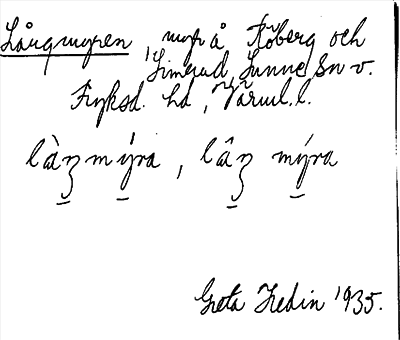 Långmyren, myr å Röberg och
Simgud, Sunne sn v.
Fryksd. hd, Värml. l.
làŋmýra, lâŋ mýra
Greta Hedin 1935.